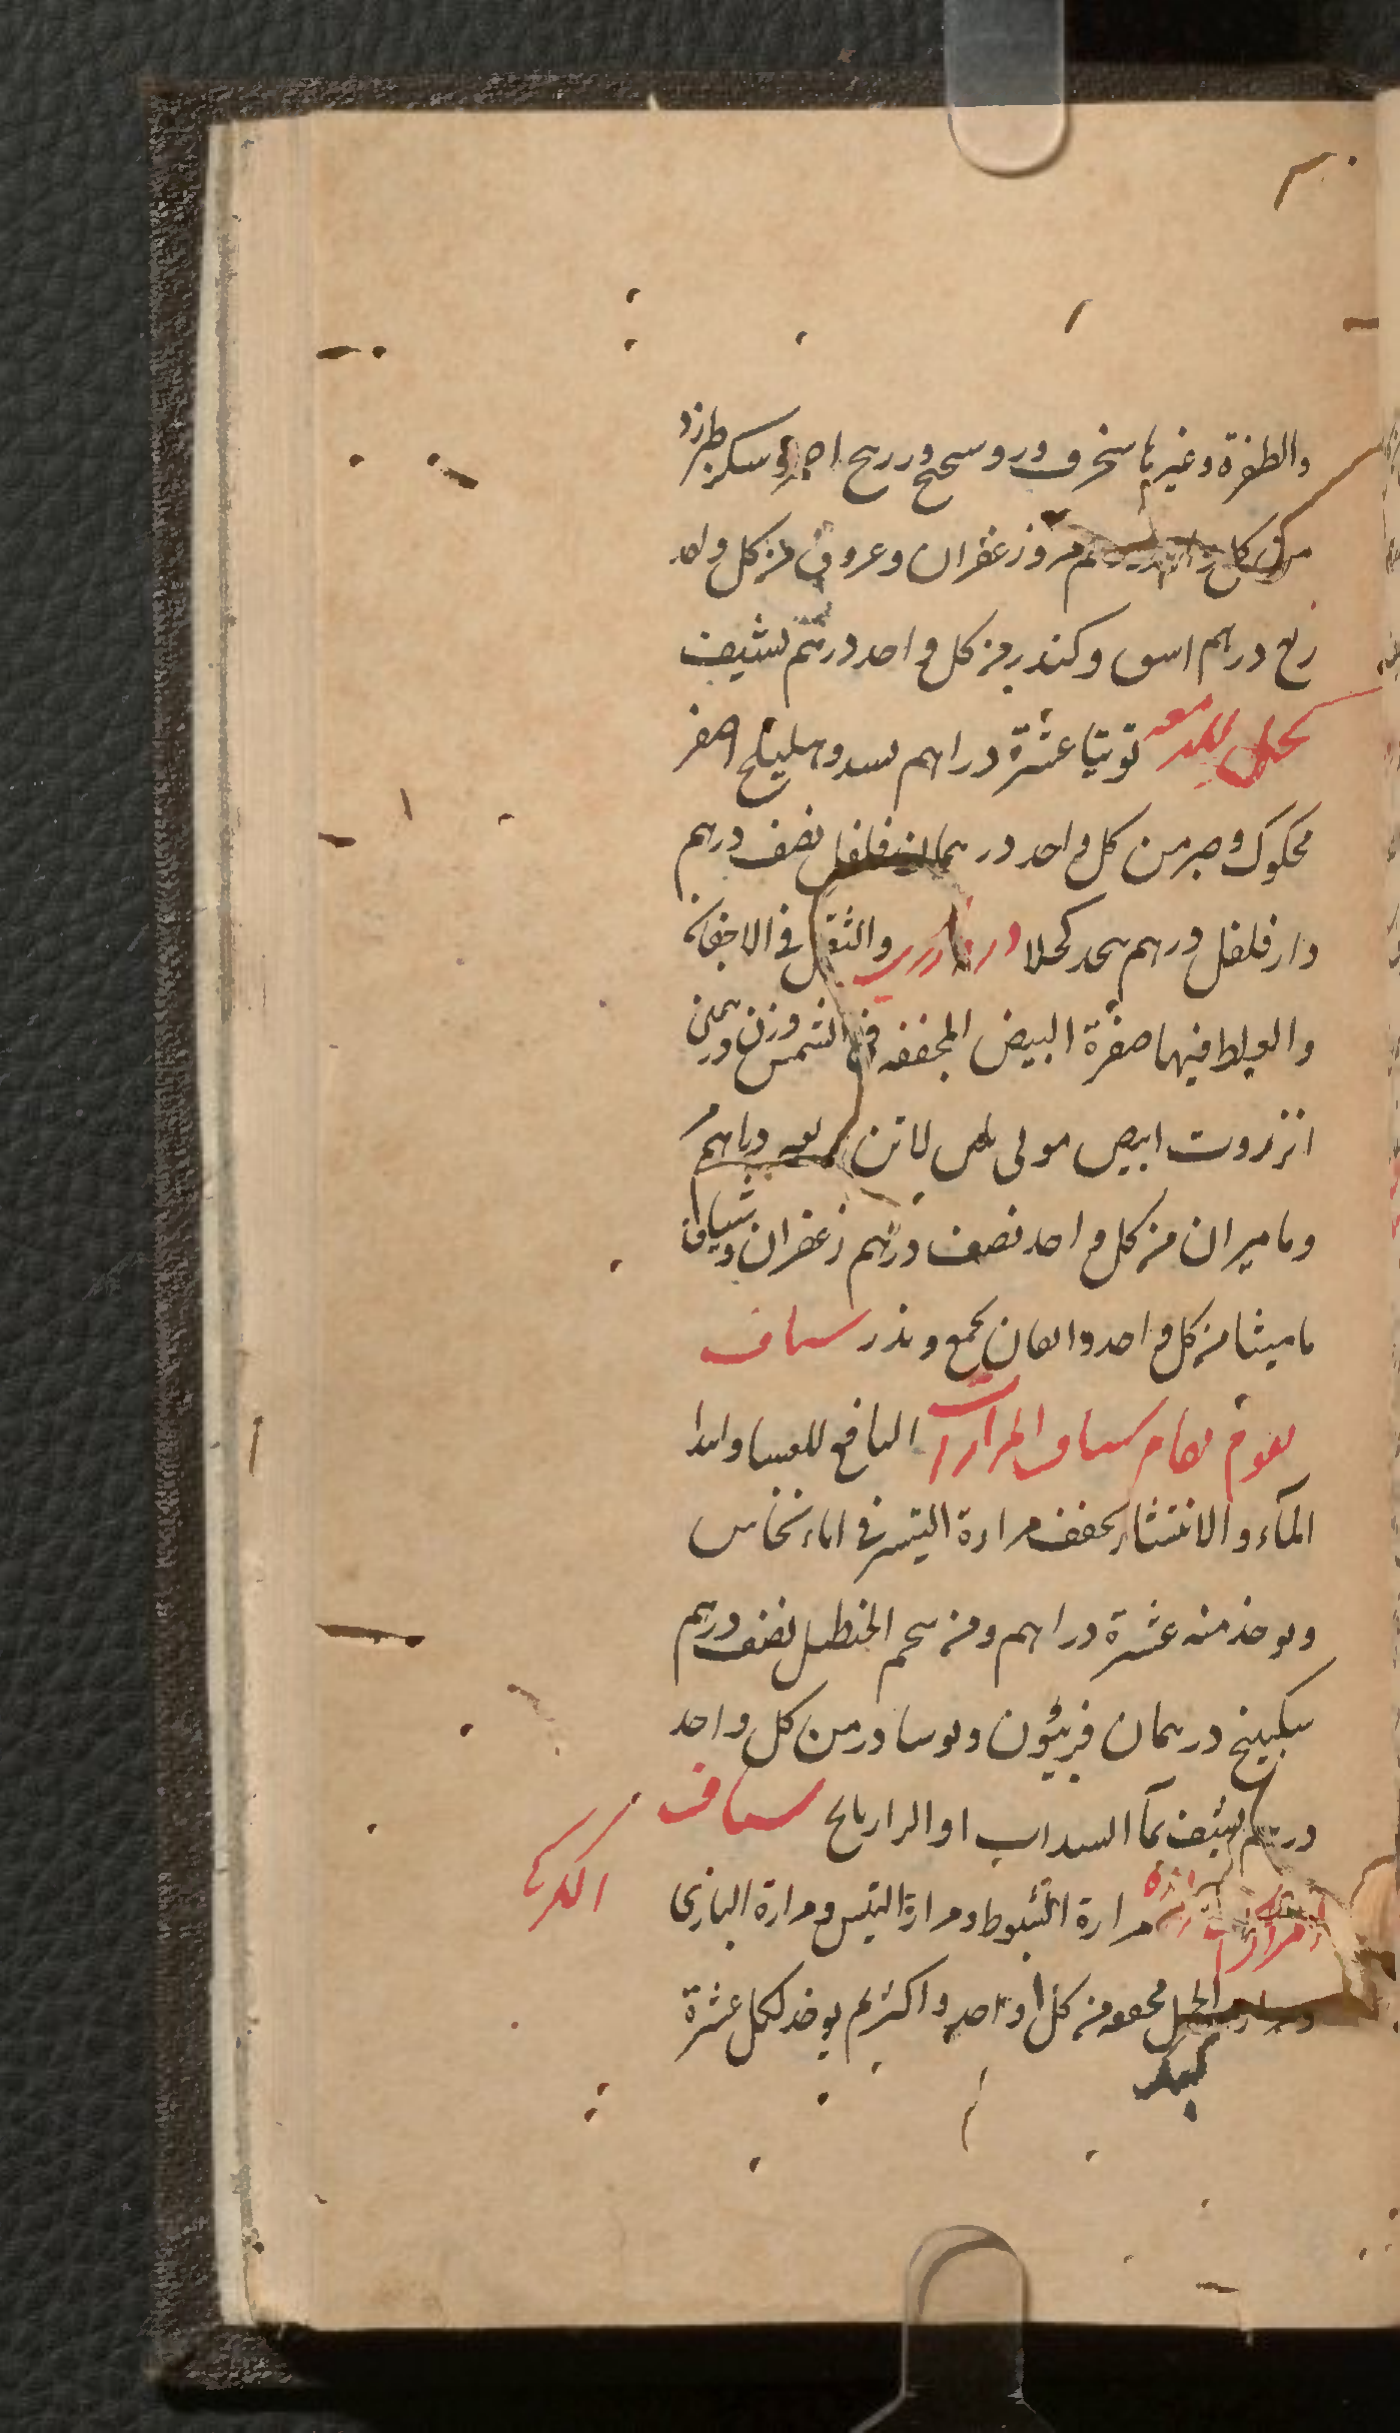 والظفرة وغيرها سخرف ودروسحج ودرريح احمر وسكر طبرزد
من كل واحد درهم مر وزعفران وعروق من كل واحد
ربع درهم اسق وكندر من كل واحد درهم يشيف
كحل للدمعه توتيا عشرة دراهم بسد وهليلج اصفر
محكوك وصبر من كل واحد درهمان فلفل نصف درهم
دار فلفل درهم يتخذ كحلا والثقل في الاجفان
والغلظ فيها صفرة البيض المجففه في الشمس وزن درهمين
انزروت ابيض دراهم
وماميران من كل واحد نصف درهم زعفران وشياف
ماميثا من كل واحد دانقان يجمع ويذر شياف
يقوم مقام شياف المرارات النافع للعشا وابتدا
المآء والانتشار يجفف مرارة التيس في اناء نحاس
ويوخذ منه عشرة دراهم ومن شحم الحنظل نصف درهم
سكبينج درهمان فربيون ونوشادر من كل واحد
درهم يشيف بمآ السداب او الرازيانج شياف
المرارات مرارة الشبوط ومرارة التيس ومرارة البازي
الكركي
ومرارة الحجل مجففه من كل واحد واكثر ثم يوخذ لكل عشرة